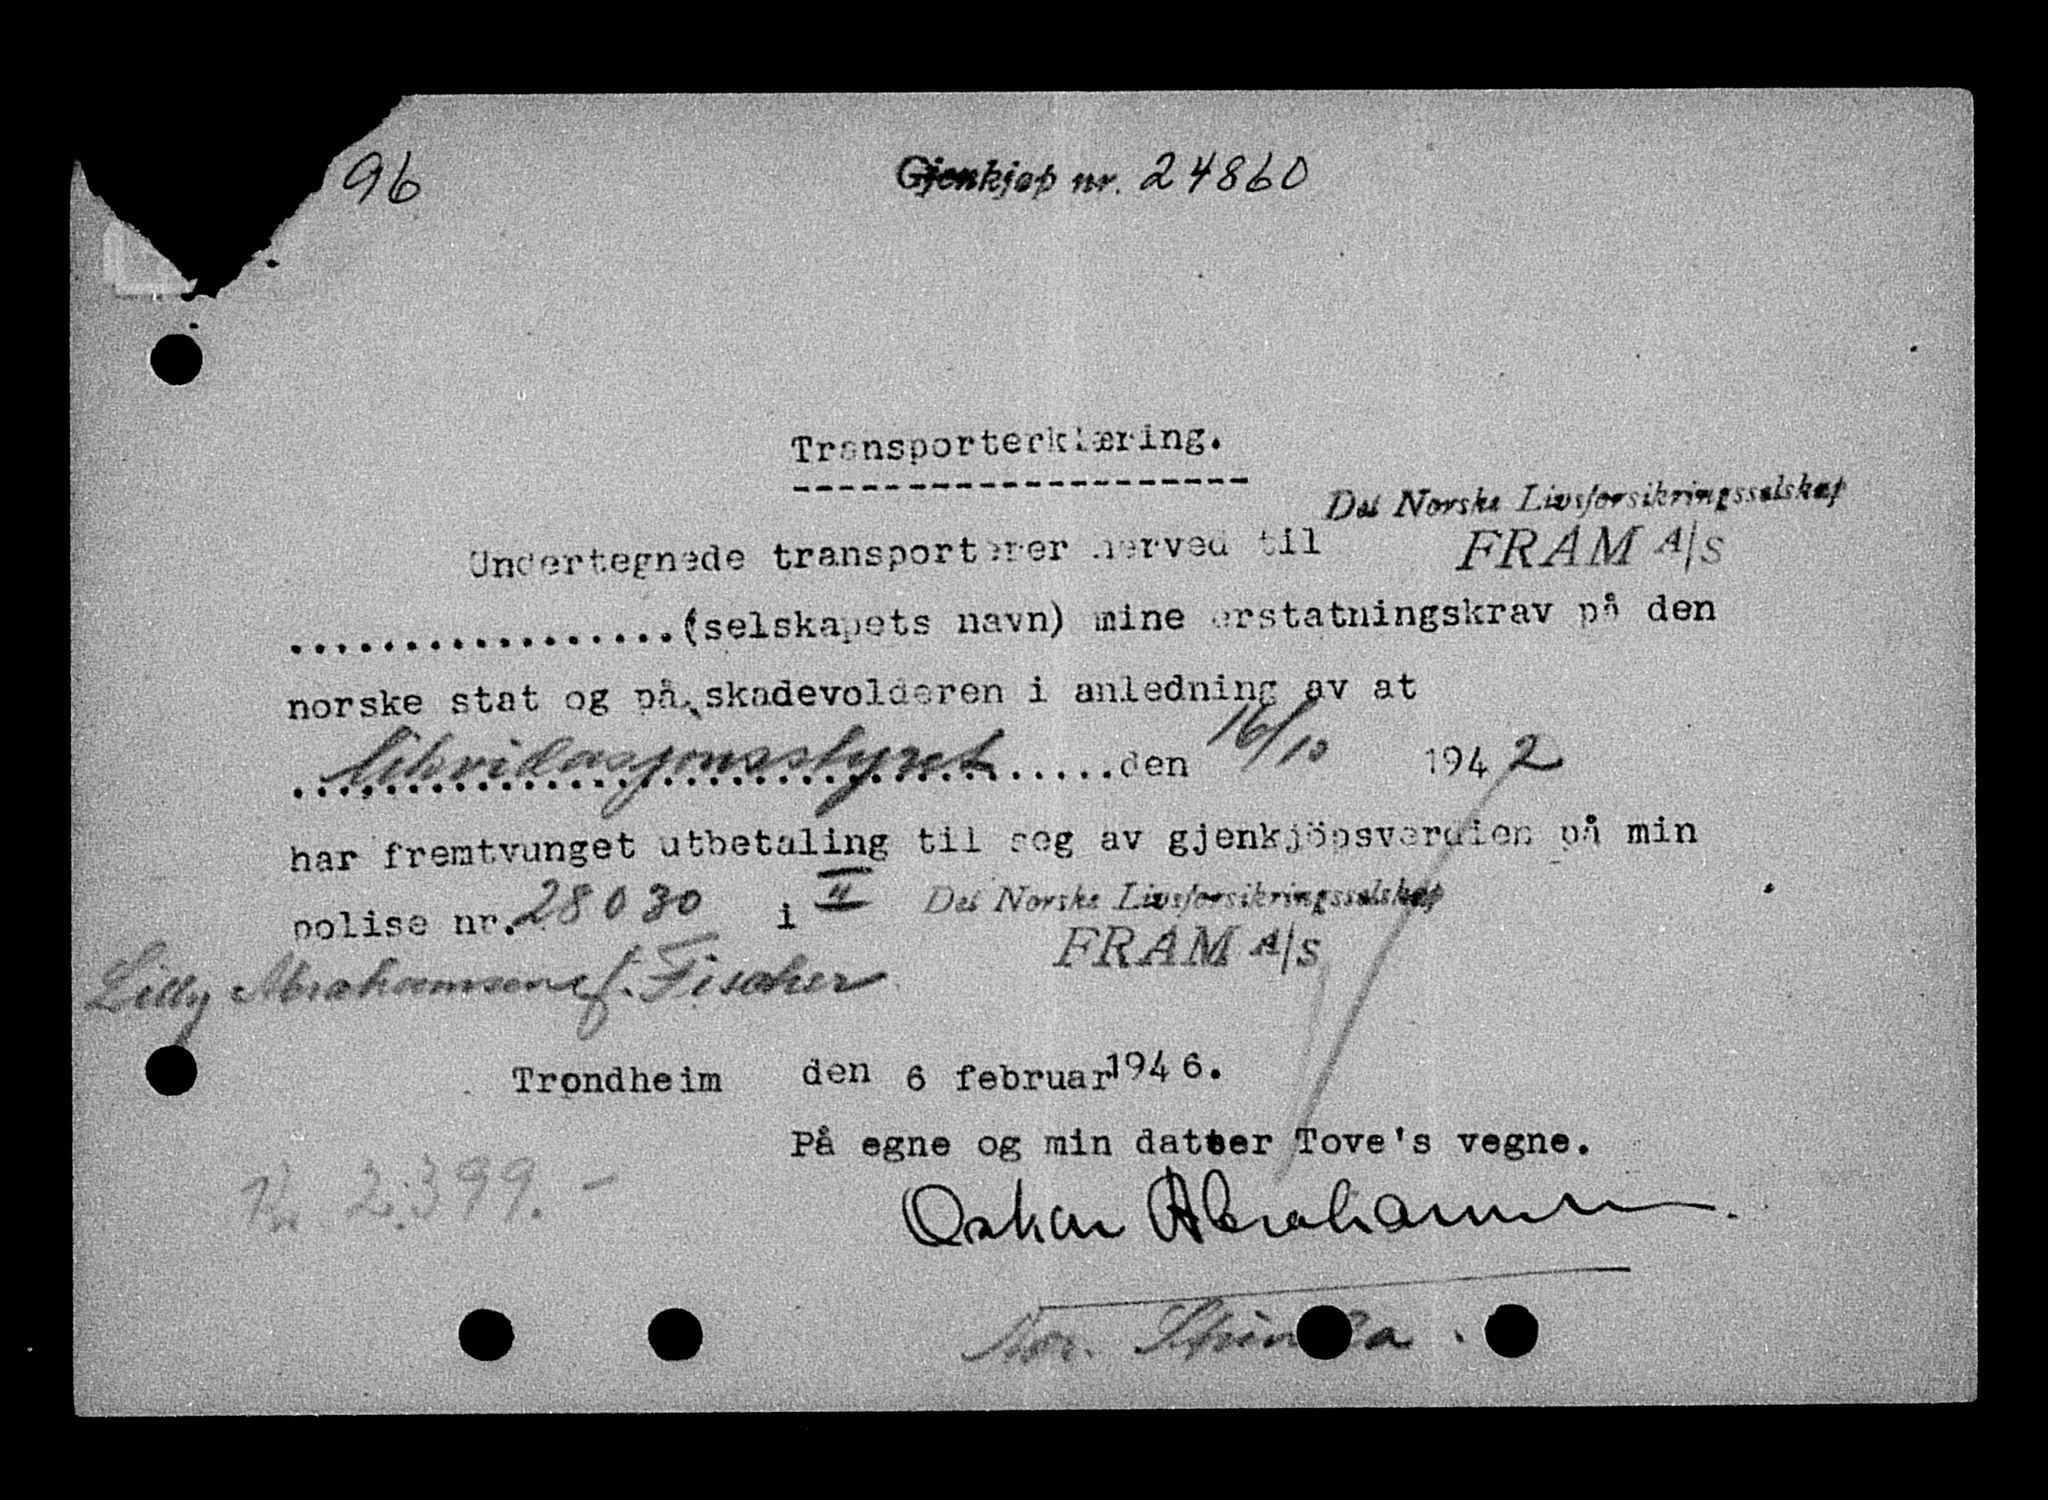 96
Gjenkjøp nr. 24860
Transporterklæring.
Det Norske Livsforsikringsselskap
FRAM A/S
Undertegnede transporterer herved til
.................(selskapets navn) mine erstatningskrav på den
norske stat og på skadevolderen i anledning av at
Likvidasjonsstyret den 16/10 1942
har fremtvunget utbetaling til seg av gjenkjöpsverdien på min
polise nr. 28030 i "
Det Norske Livsforsikringsselskap
FRAM A/S
Lilly Abrahamsen f. Fischer
Trondheim den 6 februar 1946.
På egne og min datter Tove's vegne.
Kr. 2.399.-
Oskar Abrahamsen